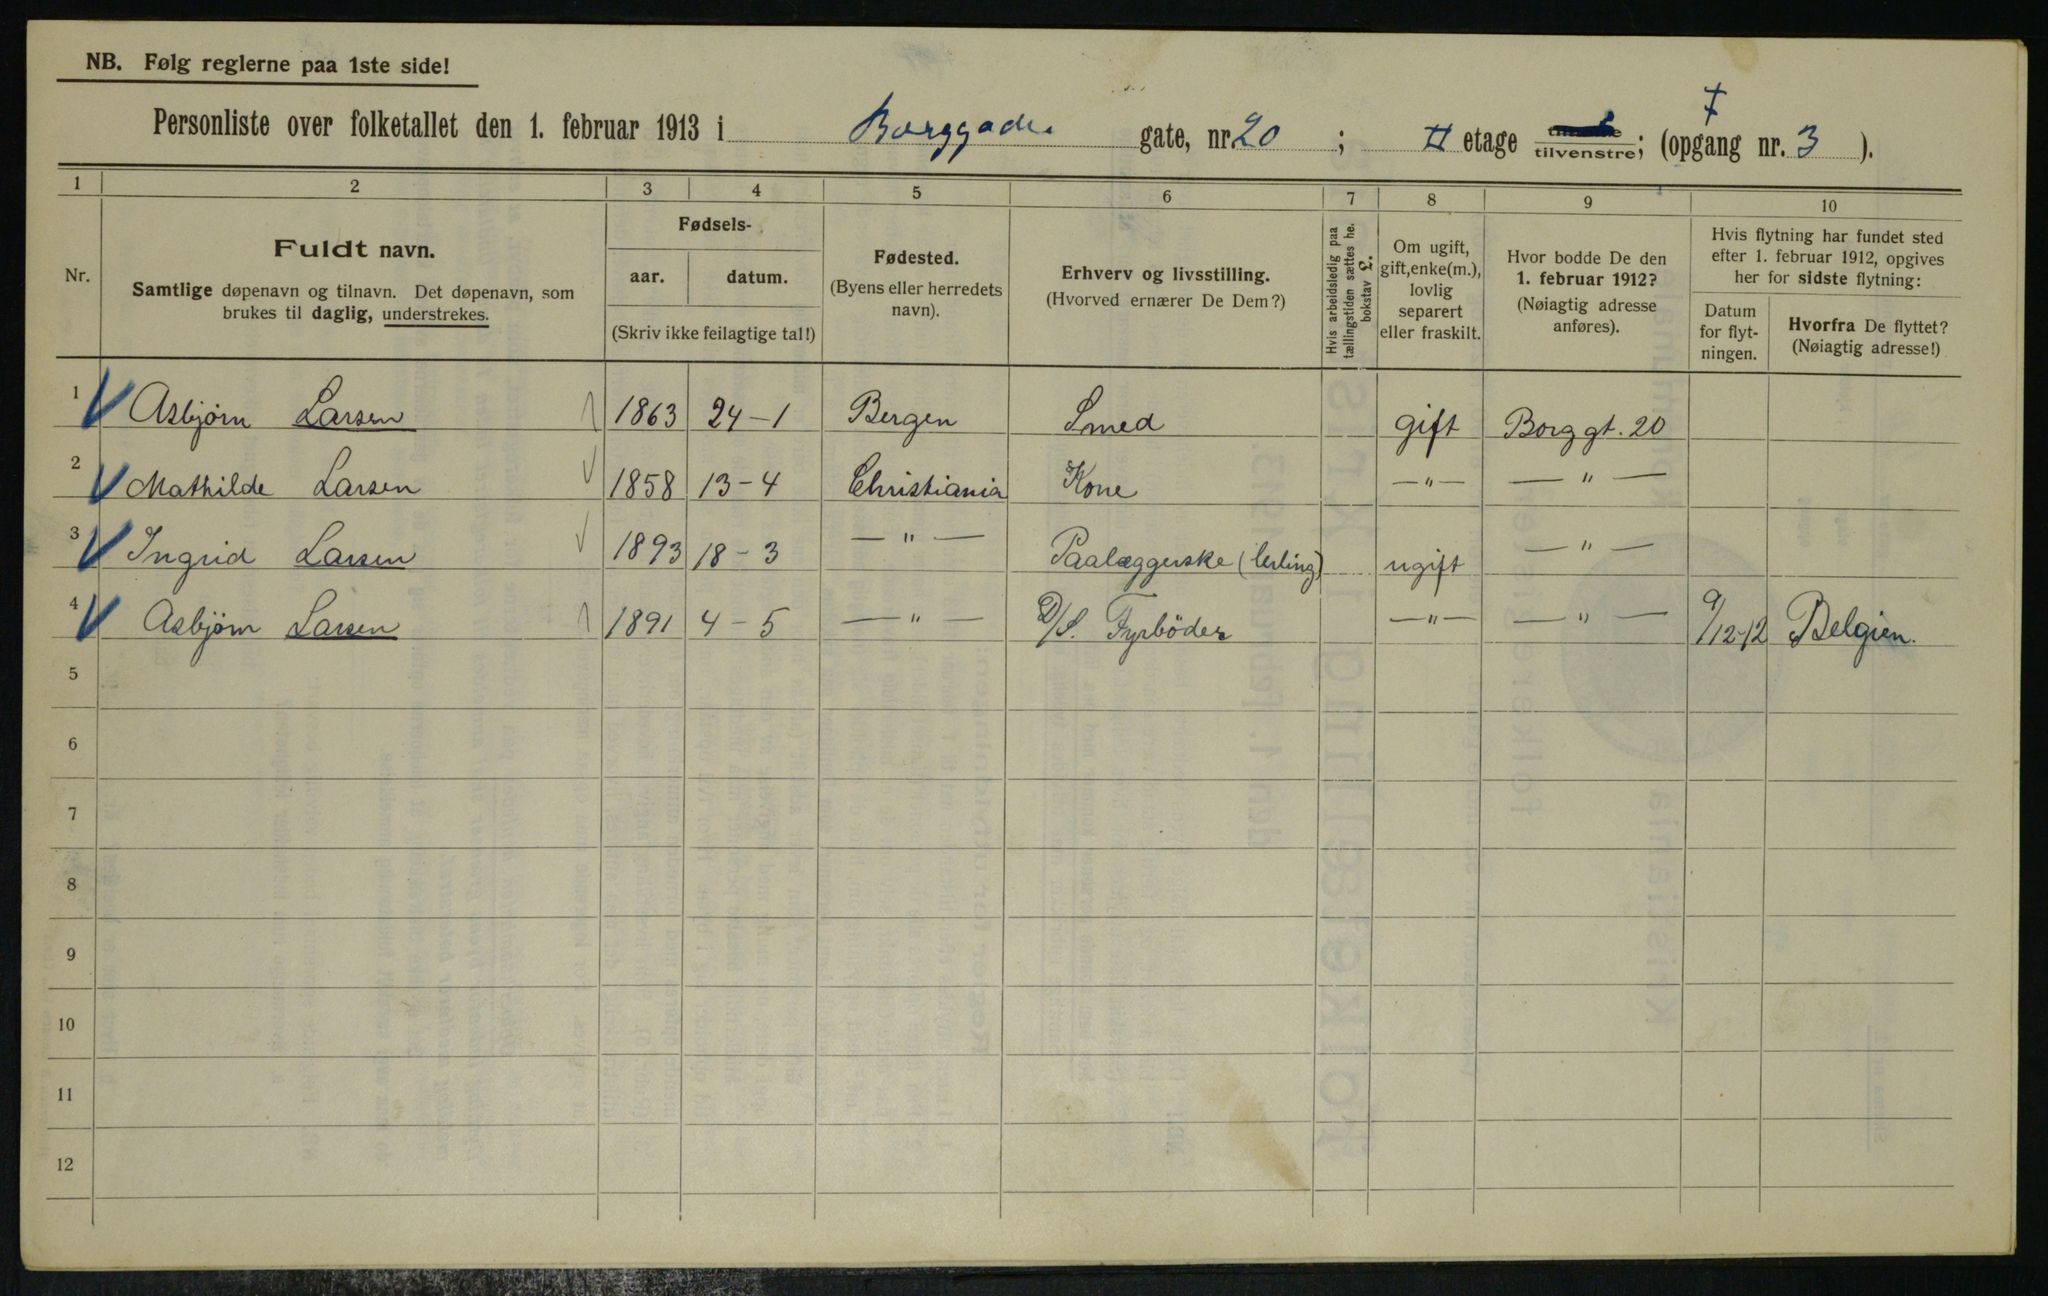 NB. Følg reglerne paa 1ste side!
Personliste over folketallet den 1. februar 1913 i Borggade gate, nr. 20 ; II etage tilvenstre; (opgang nr. 3 ).
1 2 3 4 5 6 7 8 9 10
Nr.
Fuldt navn.
Samtlige døpenavn og tilnavn. Det døpenavn, som
brukes til daglig, understrekes.
Fødsels-
aar. datum.
(Skriv ikke feilagtige tal!)
Fødested.
(Byens eller herredets
navn).
Erhverv og livsstilling.
(Hvorved ernærer De Dem?)
Hvis arbeidsledig paa
tællingstiden sættes he.
bokstav £.
Om ugift,
gift, enke(m.),
lovlig
separert
eller fraskilt.
Hvor bodde De den
1. februar 1912?
(Nøiagtig adresse
anføres).
Hvis flytning har fundet sted
efter 1. februar 1912, opgives
her for sidste flytning:
Datum
for flyt-
ningen.
Hvorfra De flyttet?
(Nøiagtig adresse!)
1 Asbjørn Larsen 1863 24-1 Bergen Smed gift Borggt. 20
2 Mathilde Larsen 1858 13-4 Christiania Kone — " — — " —
3 Ingrid Larsen 1893 18-3 — " — Paalæggerske (lerling) ugift — " —
4 Asbjørn Larsen 1891 4-5 — " — D/S. Fyrböder — " — — " — 9/12-12 Belgien.
5
6
7
8
9
10
11
12